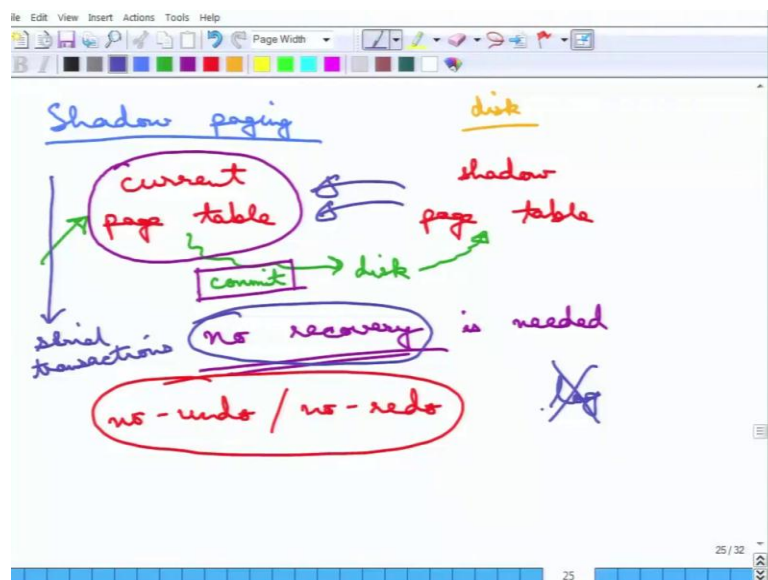 ile Edit View Insert Actions Tools Help
Page Width
B I
Shadow paging
disk
current
page table
shadow
page table
commit
disk
strict
transactions
no recovery is needed
no-undo / no-redo
log
25 / 32
25